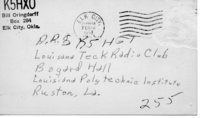 K5HXO
Bill Oringderff
Box 294
Elk City, Okla.
ELK CITY
O.R.S K5HGT
Louisana Teck Radio Club
Bogard Hall
Louisiana Polytechnic Institute
Ruston, La.
255